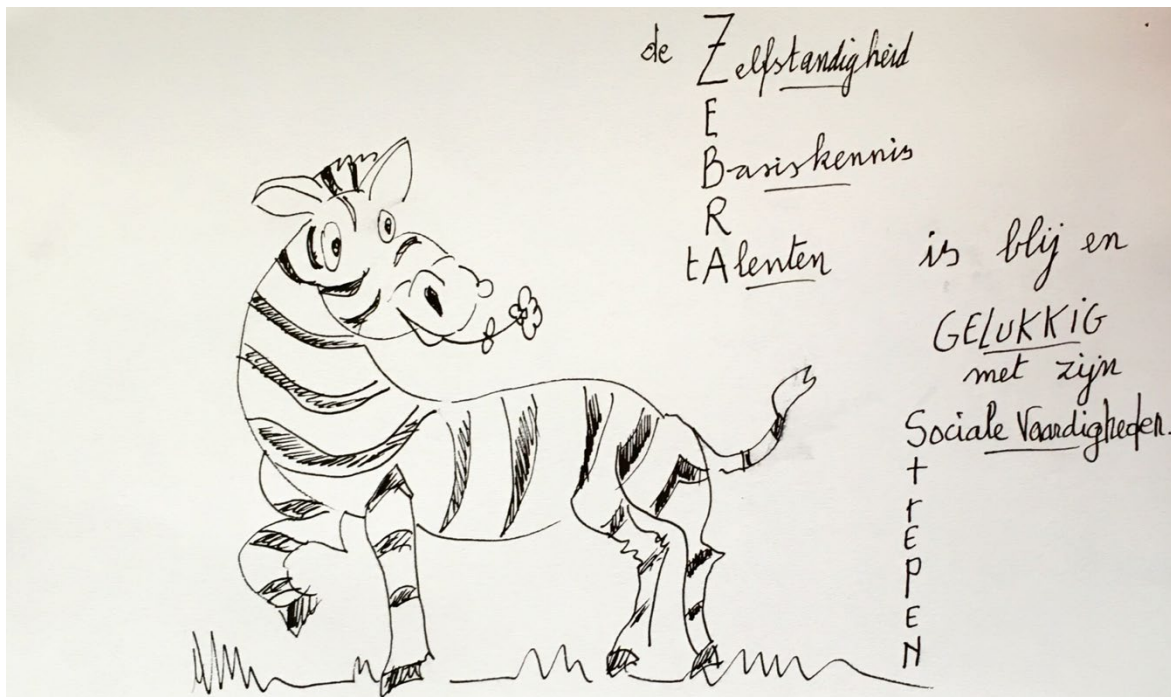 de Zelfstandigheid
E
Basiskennis
R
tAlenten
is blij en
GELUKKIG
met zijn
Sociale Vaardigheden.
t
r
E
P
E
N